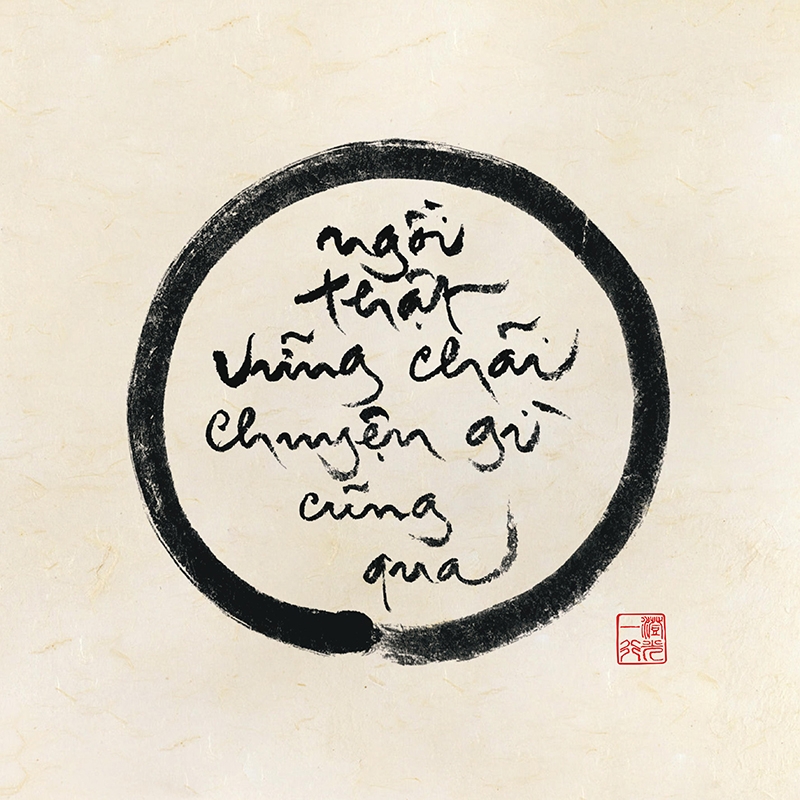 ngồi
thật
vững chãi
chuyện gì
cũng
qua
一 澄
行 光